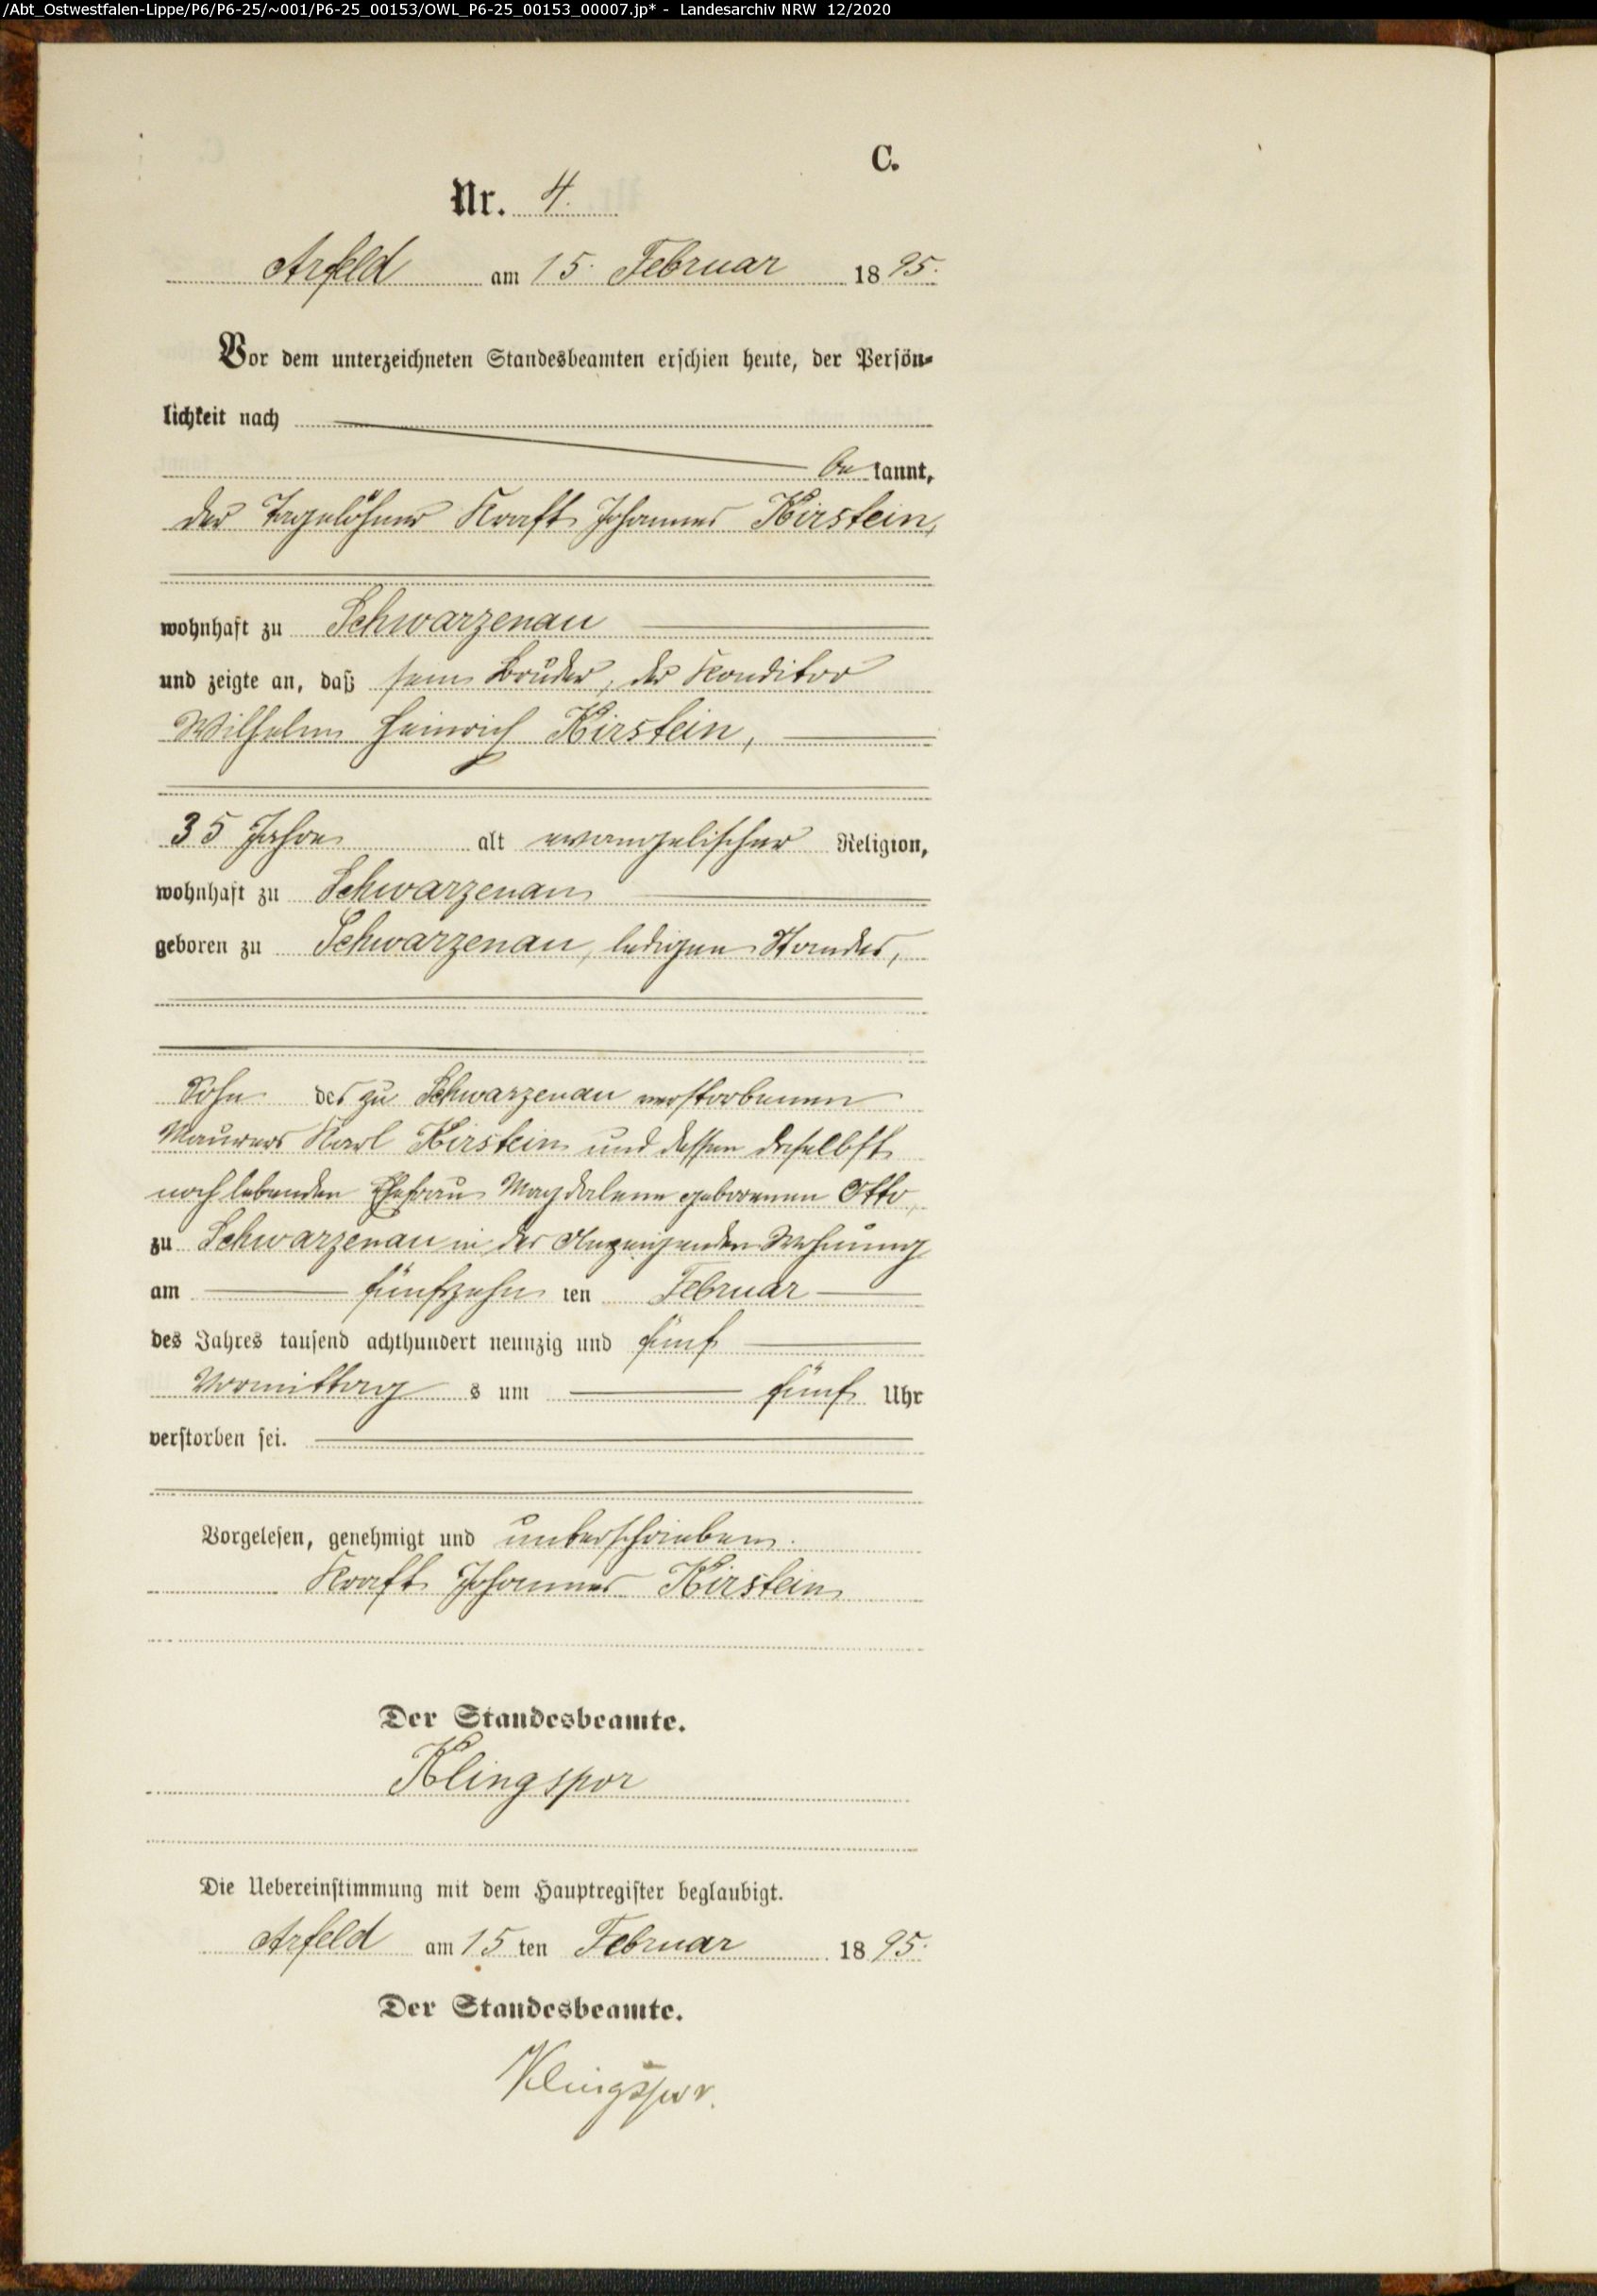 /Abt_Ostwestfalen-Lippe/P6/P6-25/~001/P6-25_00153/OWL_P6-25_00153_00007.jp* - Landesarchiv NRW 12/2020
C.
Nr. 4.
Arfeld am 15. Februar 1895.
Vor dem unterzeichneten Standesbeamten erschien heute, der Persön-
lichkeit nach
be kannt,
der Tagelöhner Kraft Johannes Kirstein,
wohnhaft zu Schwarzenau
und zeigte an, daß sein Bruder, der Konditor
Wilhelm Heinrich Kirstein,
35 Jahre alt evangelischer Religion,
wohnhaft zu Schwarzenau
geboren zu Schwarzenau, ledigen Standes,
Sohn des zu Schwarzenau verstorbenen
Maurers Karl Kirstein und dessen daselbst
noch lebenden Ehefrau Magdalene geborenen Otto,
zu Schwarzenau in der Anzeigenden Wohnung
am fünfzehn ten Februar
des Jahres tausend achthundert neunzig und fünf
Vormittag s um fünf Uhr
verstorben sei.
Vorgelesen, genehmigt und unterschrieben.
Kraft Johannes Kirstein
Der Standesbeamte.
Klingspor
Die Uebereinstimmung mit dem Hauptregister beglaubigt.
Arfeld am 15 ten Februar 1895.
Der Standesbeamte.
Klingspor.